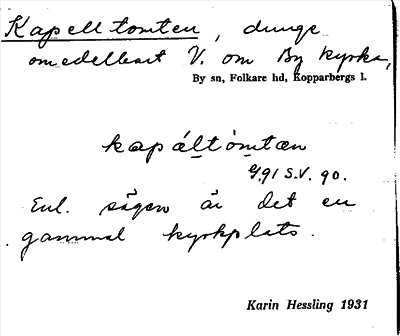 Kapelltomten, dunge
omedelbart V. om By kyrka,
By sn, Folkare hd, Kopparbergs l.
kapáltòmtæn
91 S.V. 90.
Enl. sägen är det en
gammal kyrkplats.
Karin Hessling 1931